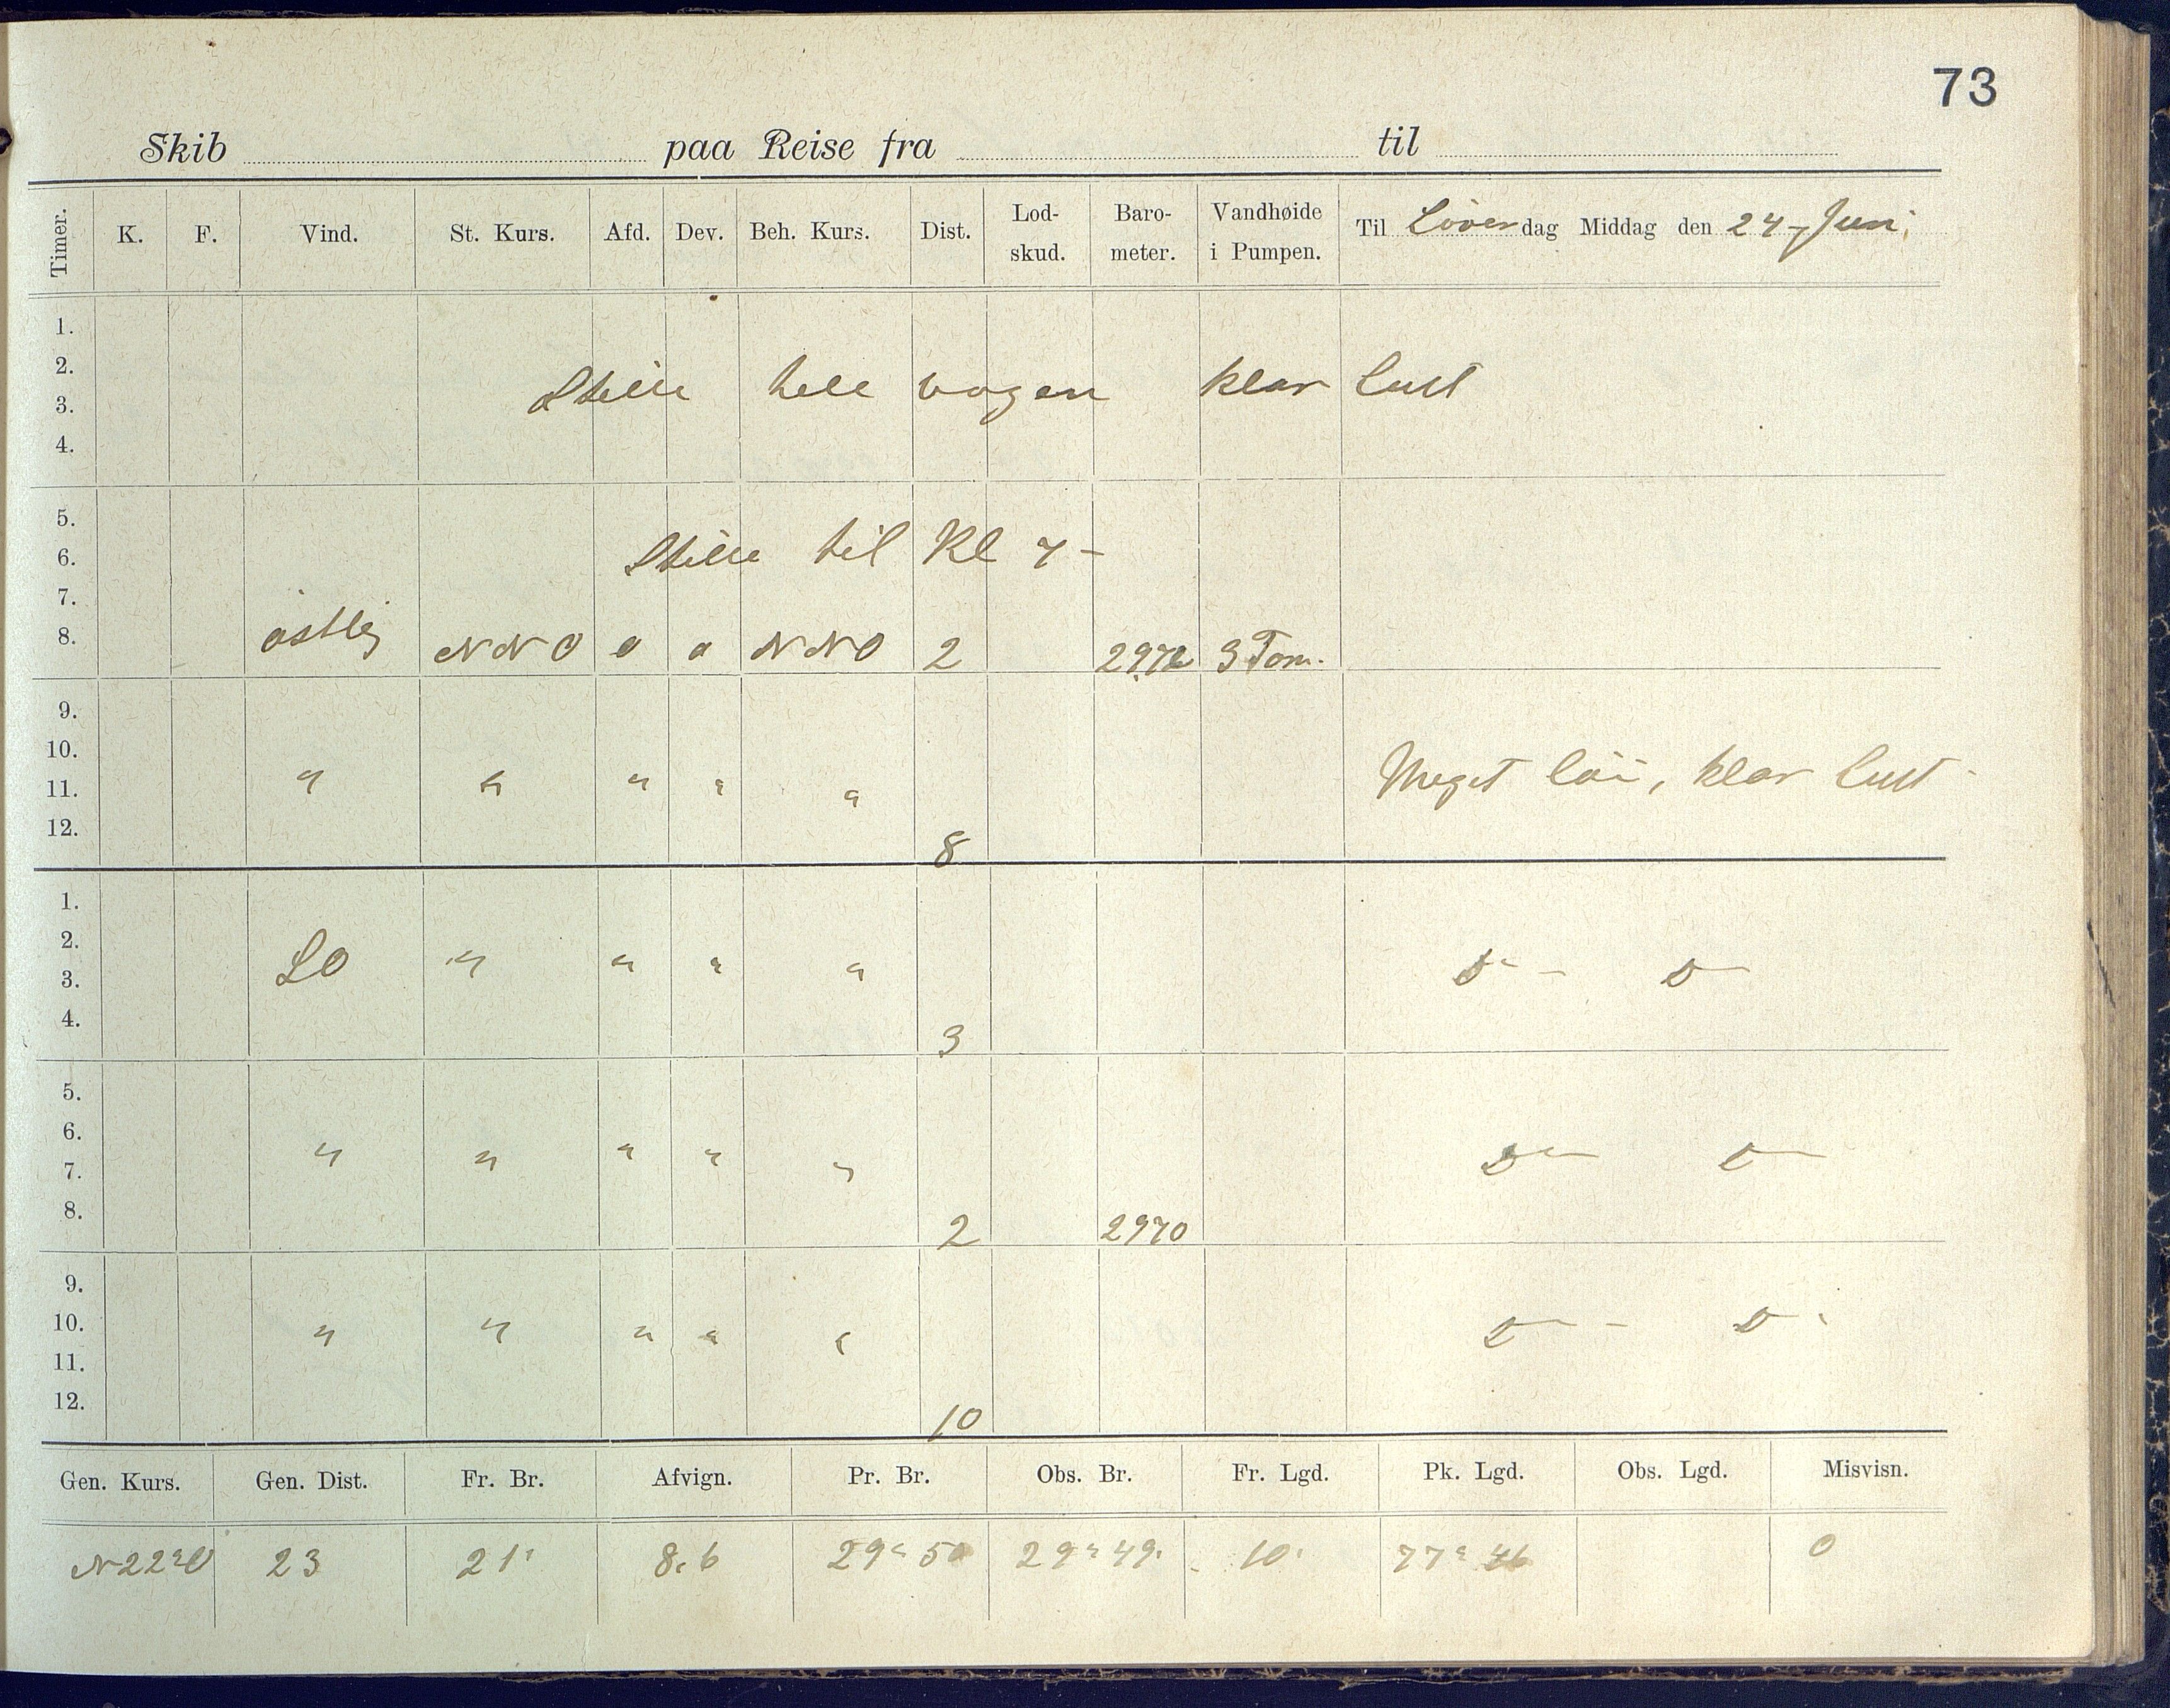 73
Skib paa Reise fra til
Timer. K. F. Vind. St. Kurs. Afd. Dev. Beh. Kurs. Dist. Lod-skud. Baro-meter. Vandhøide i Pumpen. Til Löverdag Middag den 24 Juni
1.
2.
Stille hele vagen klar luft
3.
4.
5.
6. Stille til Kl 7 –
7.
8. östlig NNO 0 0 NNO 2 2972 3 Tom.
9.
10.
11. " " " " " Meget löi, klar luft
12. 8
1.
2.
3. SO " " " " D– D–
4. 3
5.
6.
7. " " " " " D– D–
8. 2 2970
9.
10. " " " " " D– D–
11.
12. 10
Gen. Kurs. Gen. Dist. Fr. Br. Afvign. Pr. Br. Obs. Br. Fr. Lgd. Pk. Lgd. Obs. Lgd. Misvisn.
N22°O 23 21' 8,6 29° 50 29° 49' 10' 77° 46 0